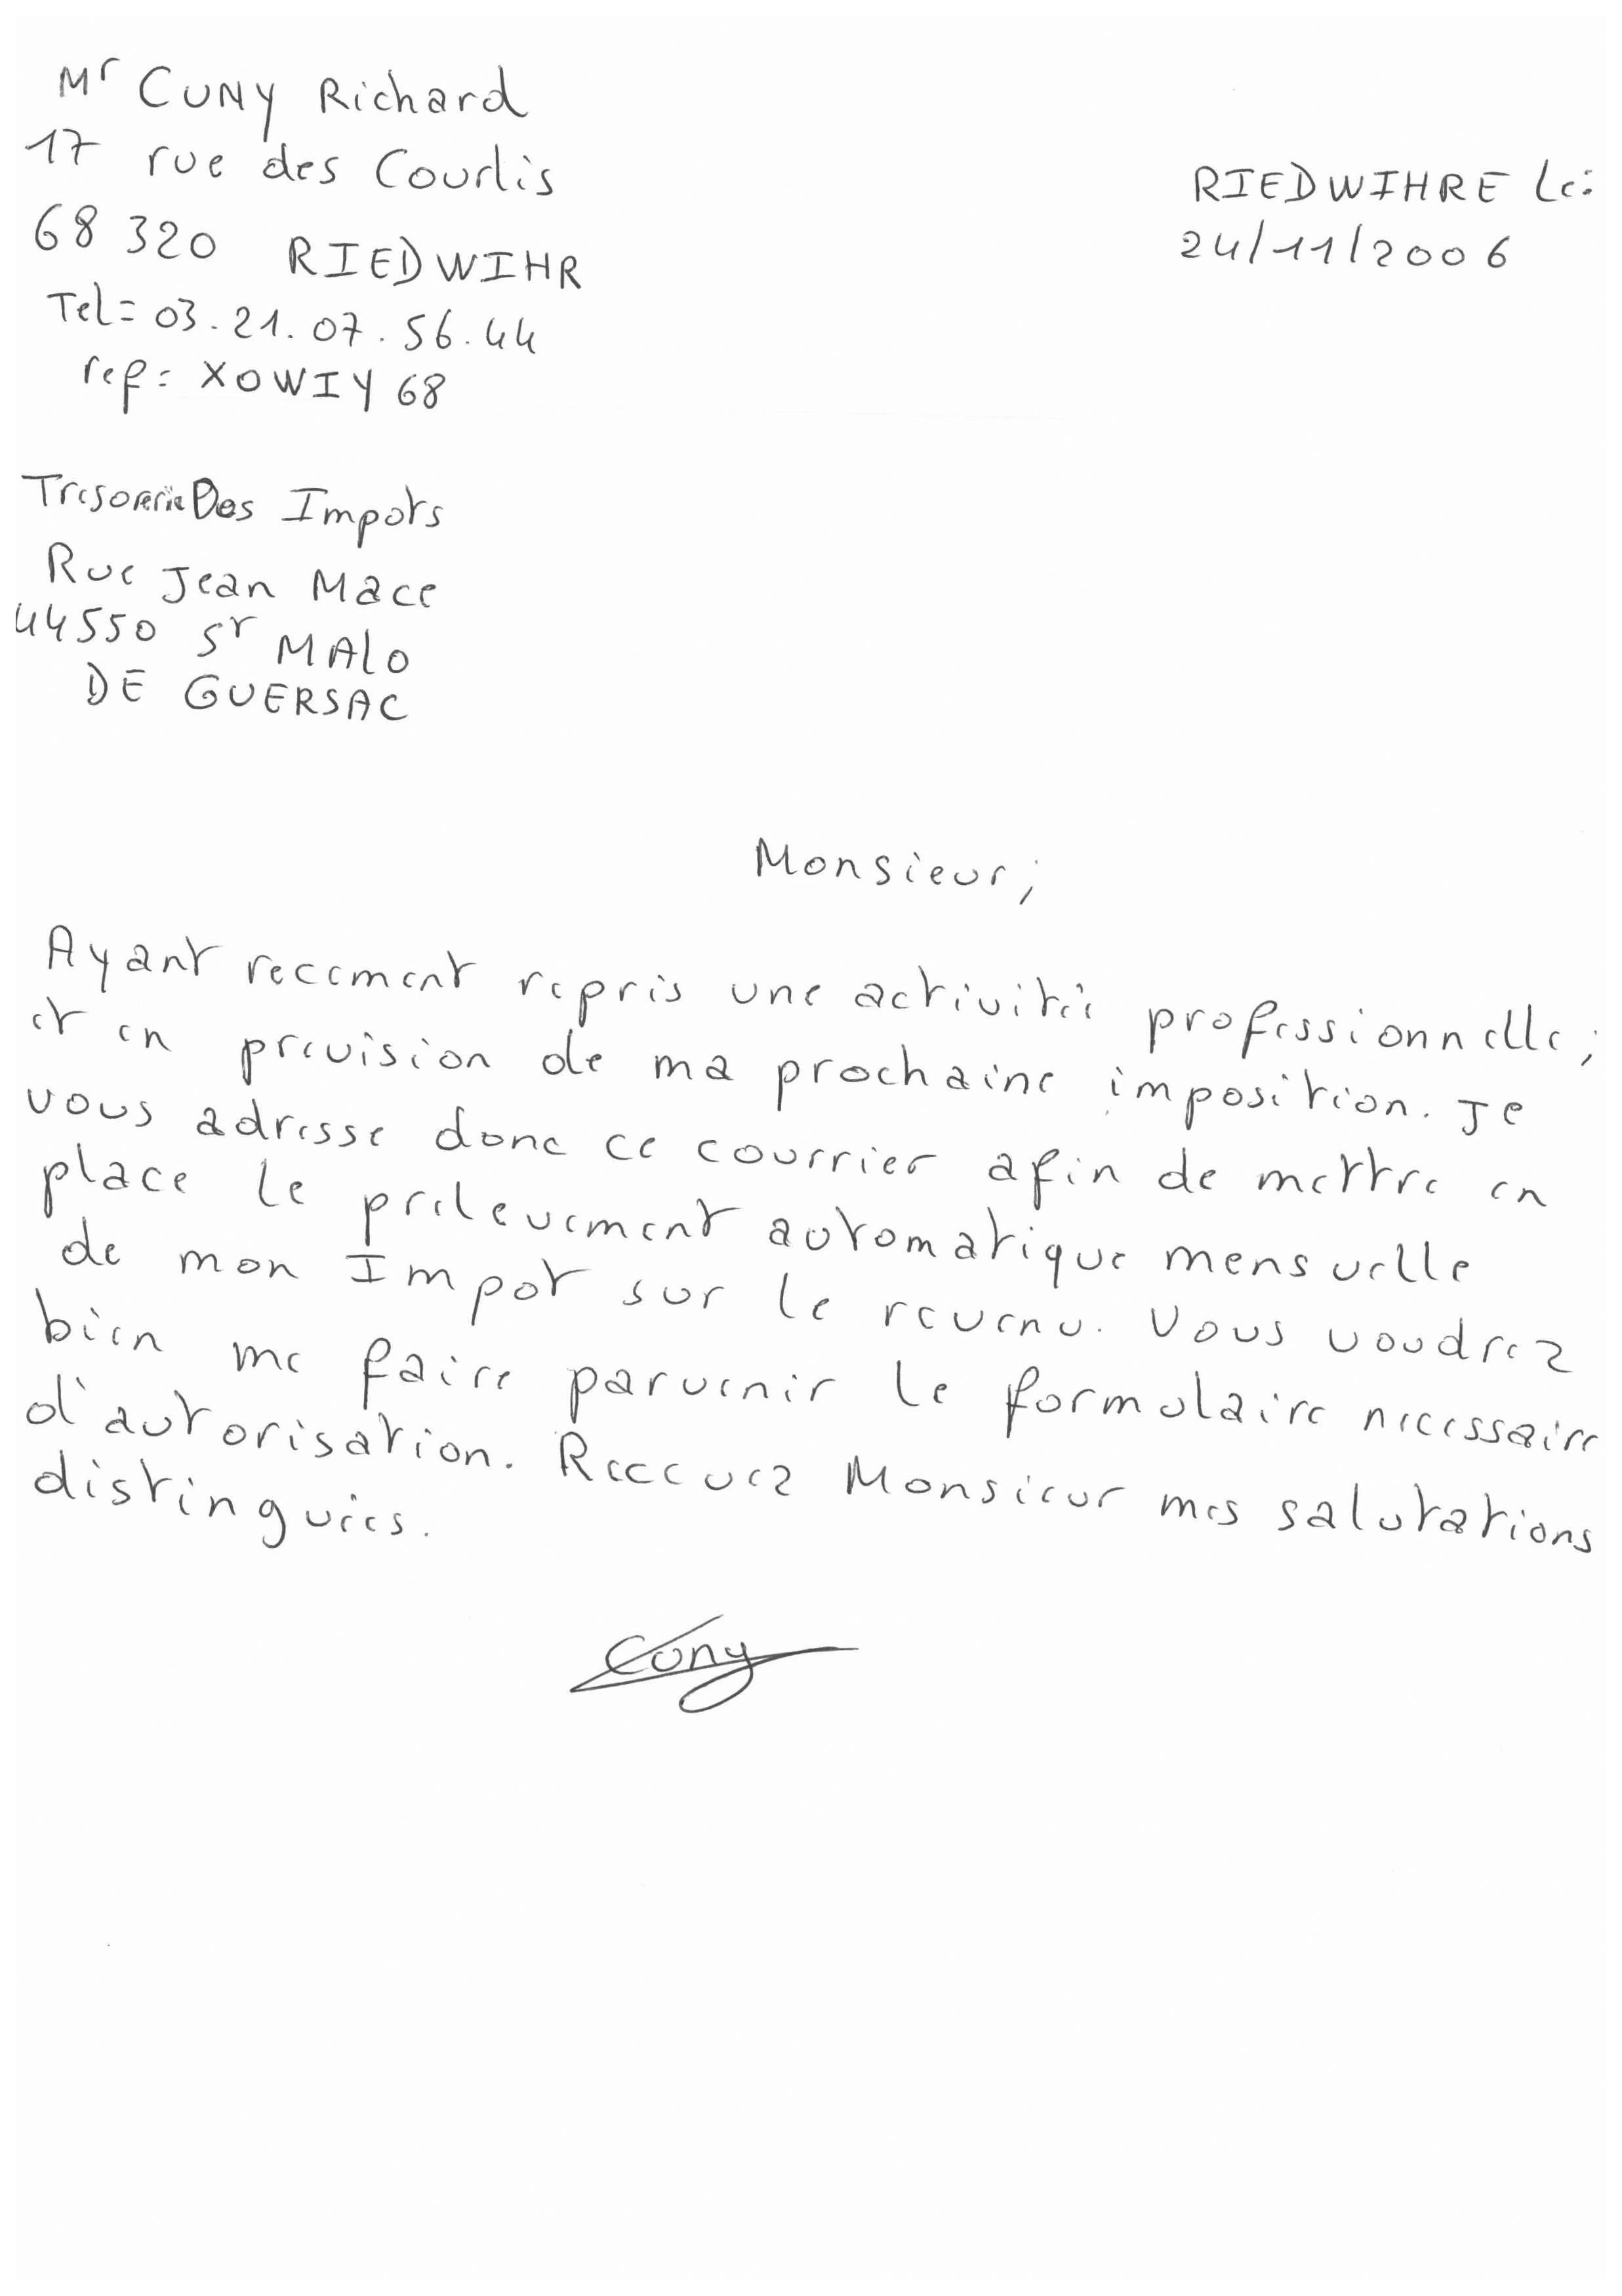 Mr CUNY Richard
17 rue des Courlis
68 320 RIEDWIHR
Tel = 03.21.07.56.44
ref = XOWIY 68
RIEDWIHRE Le:
24/11/2006
Tresorerie Des Impots
Rue Jean Mace
44550 St MAlO
DE GUERSAC
Monsieur;
Ayant recement repris une activitée professionnelle;
et en prevision de ma prochaine imposition. Je
vous adresse donc ce courrier afin de mettre en
place le prelevement automatique mensuelle
de mon Impot sur le revenu. Vous voudrez
bien me faire parvenir le formulaire necessaire
d'autorisation. Recevez Monsieur mes salutations
distinguées.
Cuny